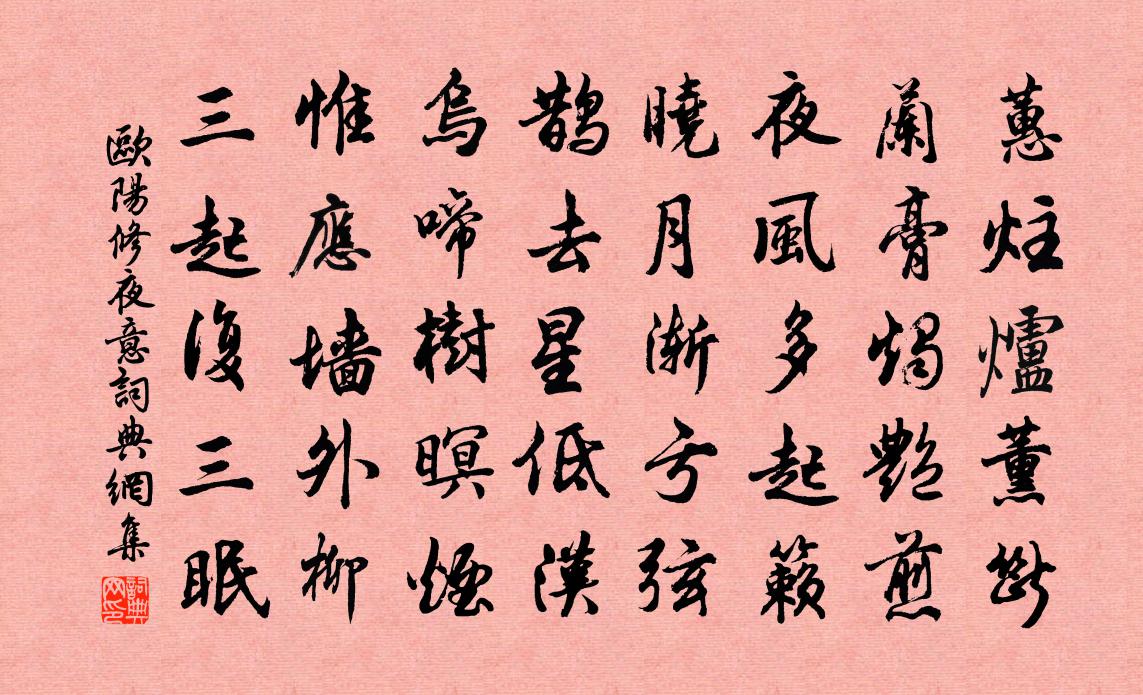 蕙炷爐薰斷
蘭膏燭艷煎
夜風多起籟
曉月漸虧弦
鵲去星低漢
烏啼樹暝煙
惟應墻外柳
三起復三眠
歐陽修夜意詞典網集
詞典網印